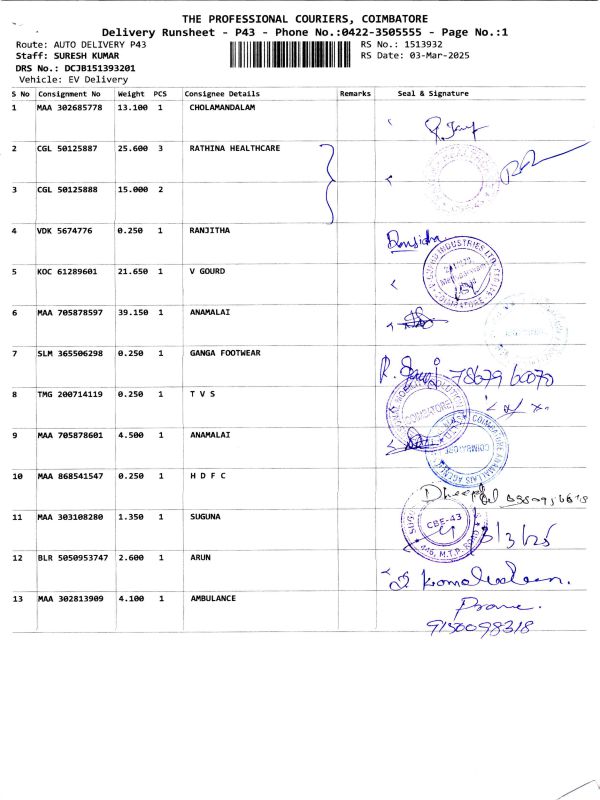 THE PROFESSIONAL COURIERS, COIMBATORE
Delivery Runsheet - P43 - Phone No.:0422-3505555 - Page No.:1
Route: AUTO DELIVERY P43 RS No.: 1513932
Staff: SURESH KUMAR RS Date: 03-Mar-2025
DRS No.: DCJB151393201
Vehicle: EV Delivery
S No Consignment No Weight PCS Consignee Details Remarks Seal & Signature
1 MAA 302685778 13.100 1 CHOLAMANDALAM
2 CGL 50125887 25.600 3 RATHINA HEALTHCARE
3 CGL 50125888 15.000 2
4 VDK 5674776 0.250 1 RANJITHA
5 KOC 61289601 21.650 1 V GOURD
6 MAA 705878597 39.150 1 ANAMALAI
7 SLM 365506298 0.250 1 GANGA FOOTWEAR
78679 60070
8 TMG 200714119 0.250 1 T V S
COIMBATORE
9 MAA 705878601 4.500 1 ANAMALAI
10 MAA 868541547 0.250 1 H D F C
11 MAA 303108280 1.350 1 SUGUNA
CBE-43
446, M.T.P. ROAD
3/3/25
12 BLR 5050953747 2.600 1 ARUN
13 MAA 302813909 4.100 1 AMBULANCE
9150098318